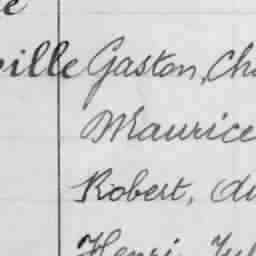 ville Gaston, Ch
Maurice
Robert, du
Henri, Jul